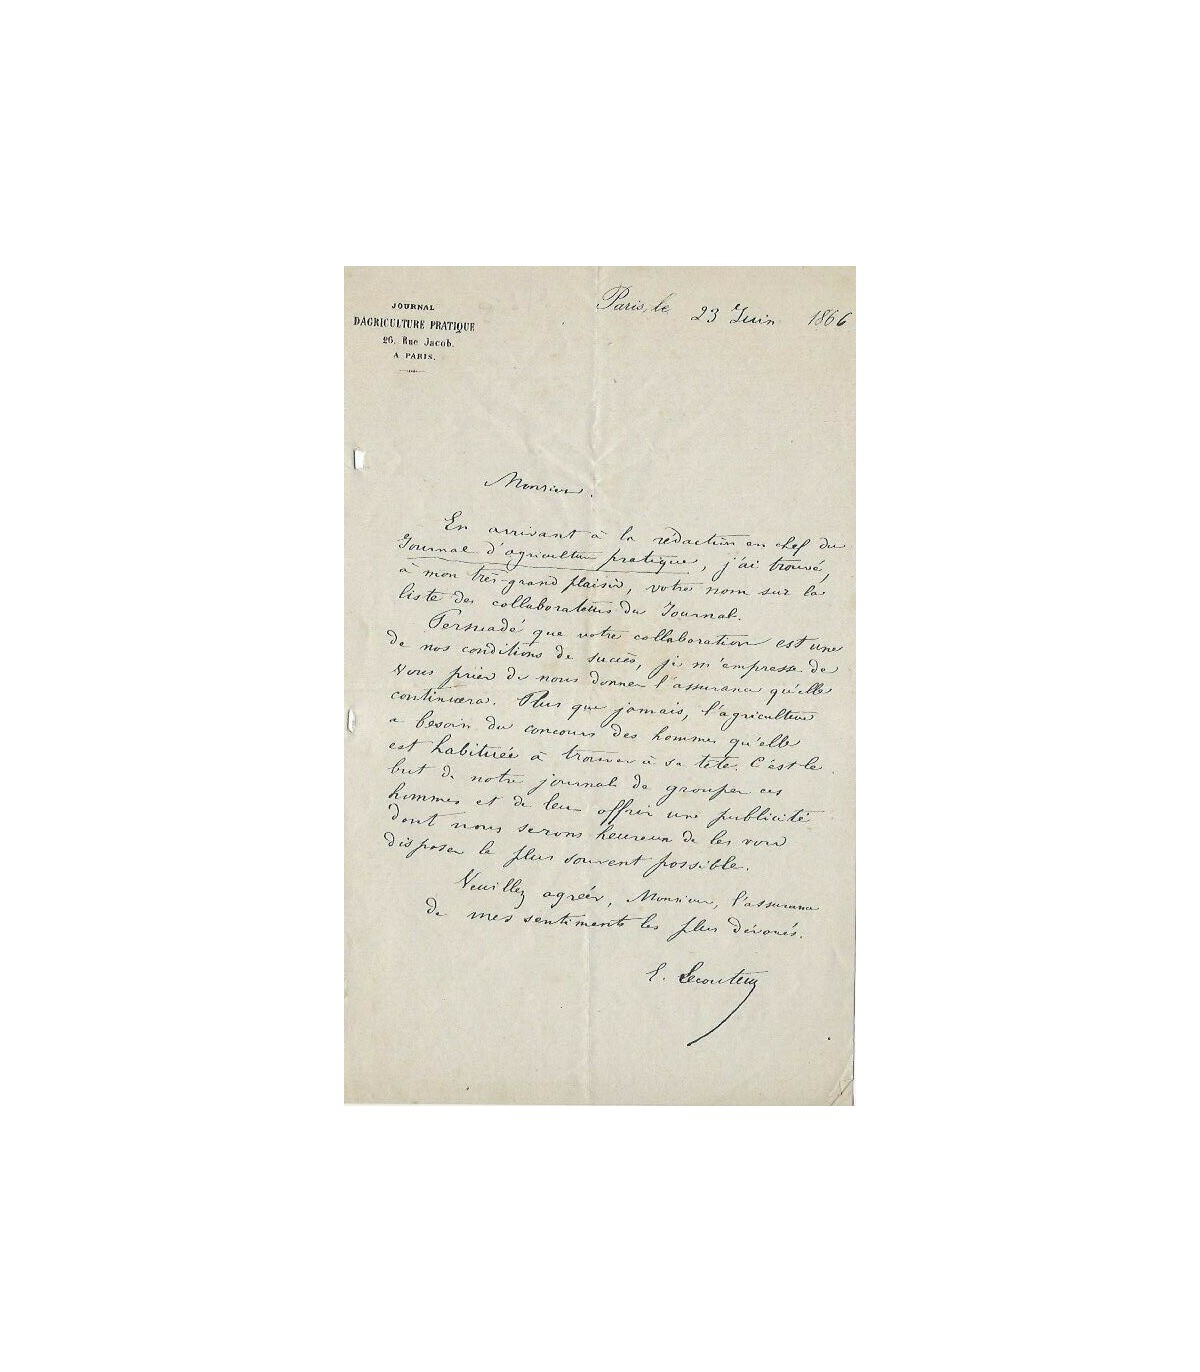 JOURNAL
D'AGRICULTURE PRATIQUE
26, Rue Jacob.
A PARIS.
Paris, le 23 Juin 1866
Monsieur.
En arrivant à la rédaction en chef du
Journal d'agriculture pratique, j'ai trouvé,
à mon très-grand plaisir, votre nom sur la
liste des collaborateurs du Journal.
Persuadé que votre collaboration est une
de nos conditions de succès, je m'empresse de
vous prier de nous donner l'assurance qu'elle
continuera. Plus que jamais, l'agriculture
a besoin du concours des hommes qu'elle
est habituée à trouver à sa tête. C'est le
but de notre journal de grouper ces
hommes et de leur offrir une publicité
dont nous serons heureux de les voir
disposer le plus souvent possible.
Veuillez agréer, Monsieur, l'assurance
de mes sentiments les plus dévoués.
E. Lecouteux